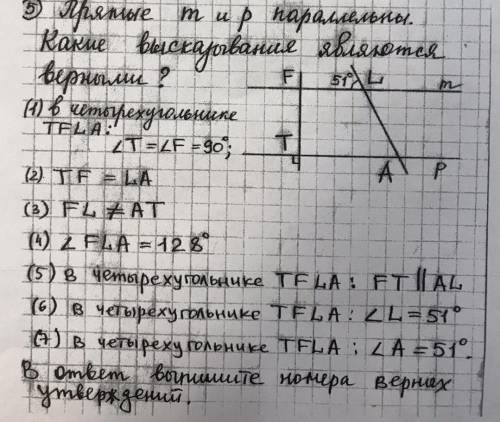 5) Прямые m и p параллельны.
Какие высказывания являются
верными?
(1) В четырехугольнике
TFLA:
∠T=∠F=90°;
(2) TF = LA
(3) FL ≠ AT
(4) ∠FLA = 128°
(5) В четырехугольнике TFLA: FT ∥ AL
(6) В четырехугольнике TFLA: ∠L = 51°
(7) В четырехугольнике TFLA: ∠A = 51°.
В ответ выпишите номера верных
утверждений.
F 51° L m
T A P